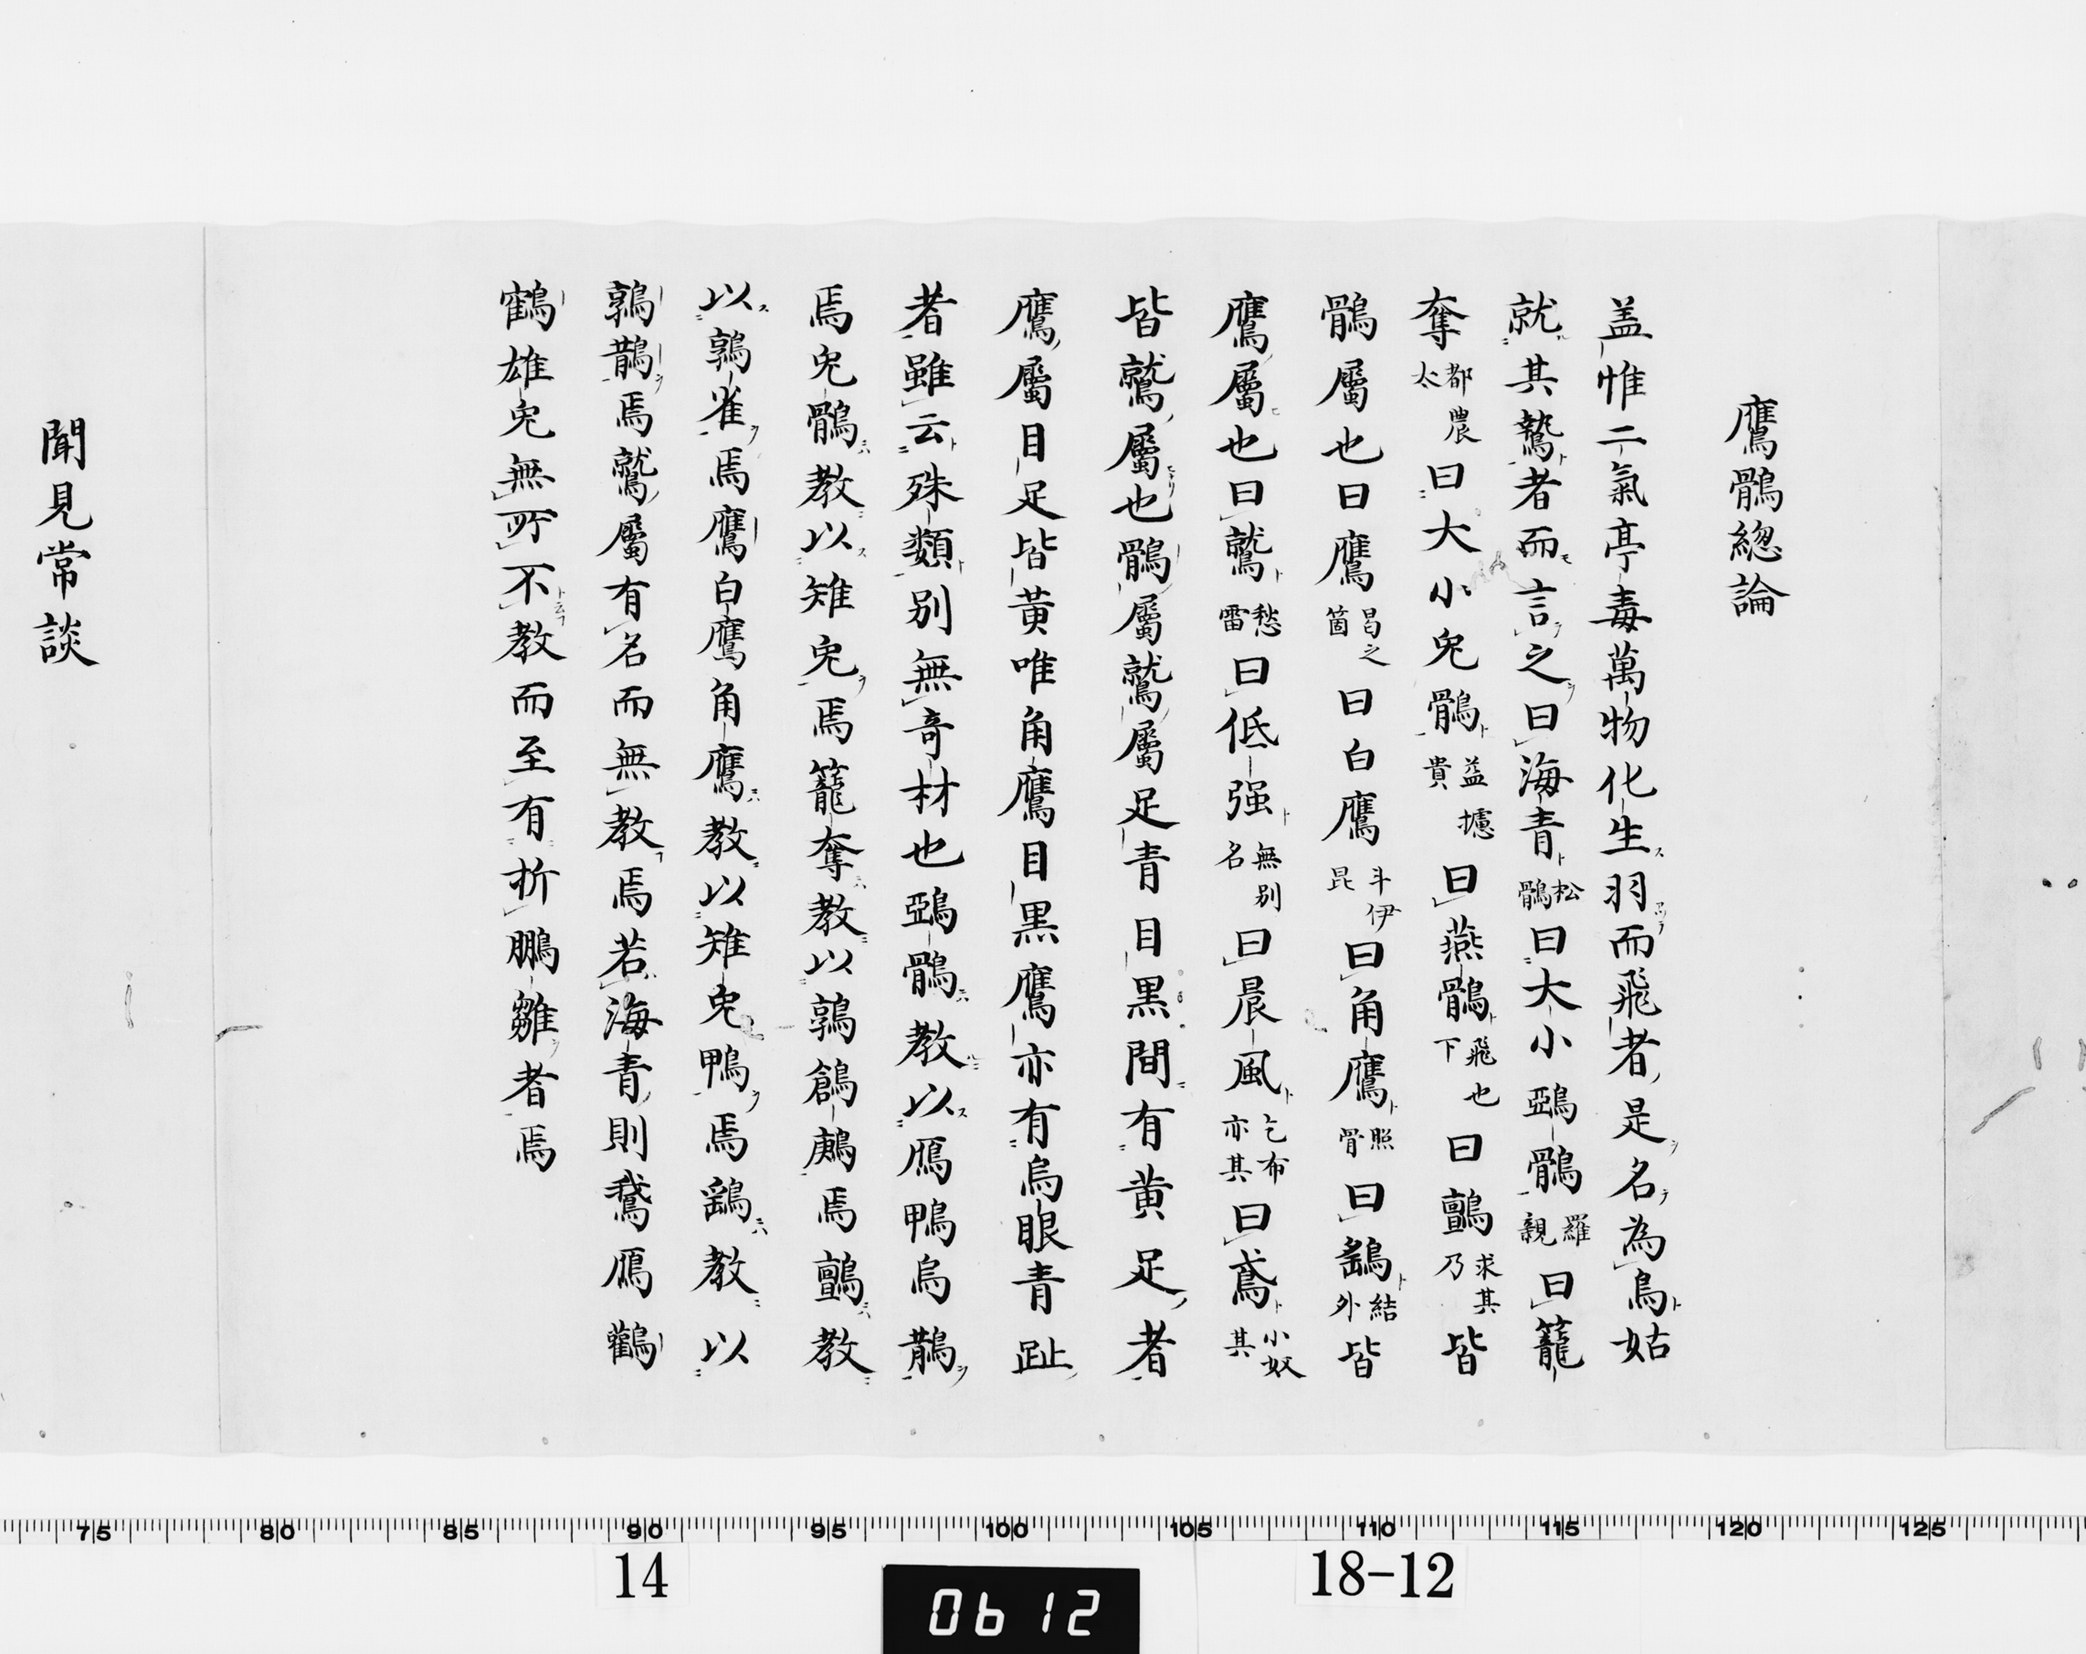 鷹鶻総論
盖惟二氣亭毒萬物化生羽而飛者是名為鳥姑
就其鷙者而言之曰海青松鶻曰大小鵶鶻羅親曰籠
奪都農太曰大小兔鶻益攄貴曰燕鶻飛也下曰鸇求其乃皆
鶻屬也曰鷹曷之箇曰白鷹斗伊昆曰角鷹照骨曰鷂結外皆
鷹屬也曰鷲愁雷曰低强無别名曰晨風乞布亦其曰鳶小奴其
皆鷲屬也鶻屬鷲屬足青目黒間有黄足者
鷹屬目足皆黄唯角鷹目黒鷹亦有烏眼青趾
者雖云殊類别無奇材也鵶鶻教以鴈鴨烏鵲
焉兔鶻教以雉兔焉籠奪教以鶉鴿鷓焉鸇教
以鶉雀焉鷹白鷹角鷹教以雉兔鴨焉鷂教以
鶉鵲焉鷲屬有名而無教焉若海青則鵞鴈鸛
鶴雄兔無所不教而至有折鵬雛者焉
聞見常談
75 80 85 90 95 100 105 110 115 120 125
14
0612
18-12